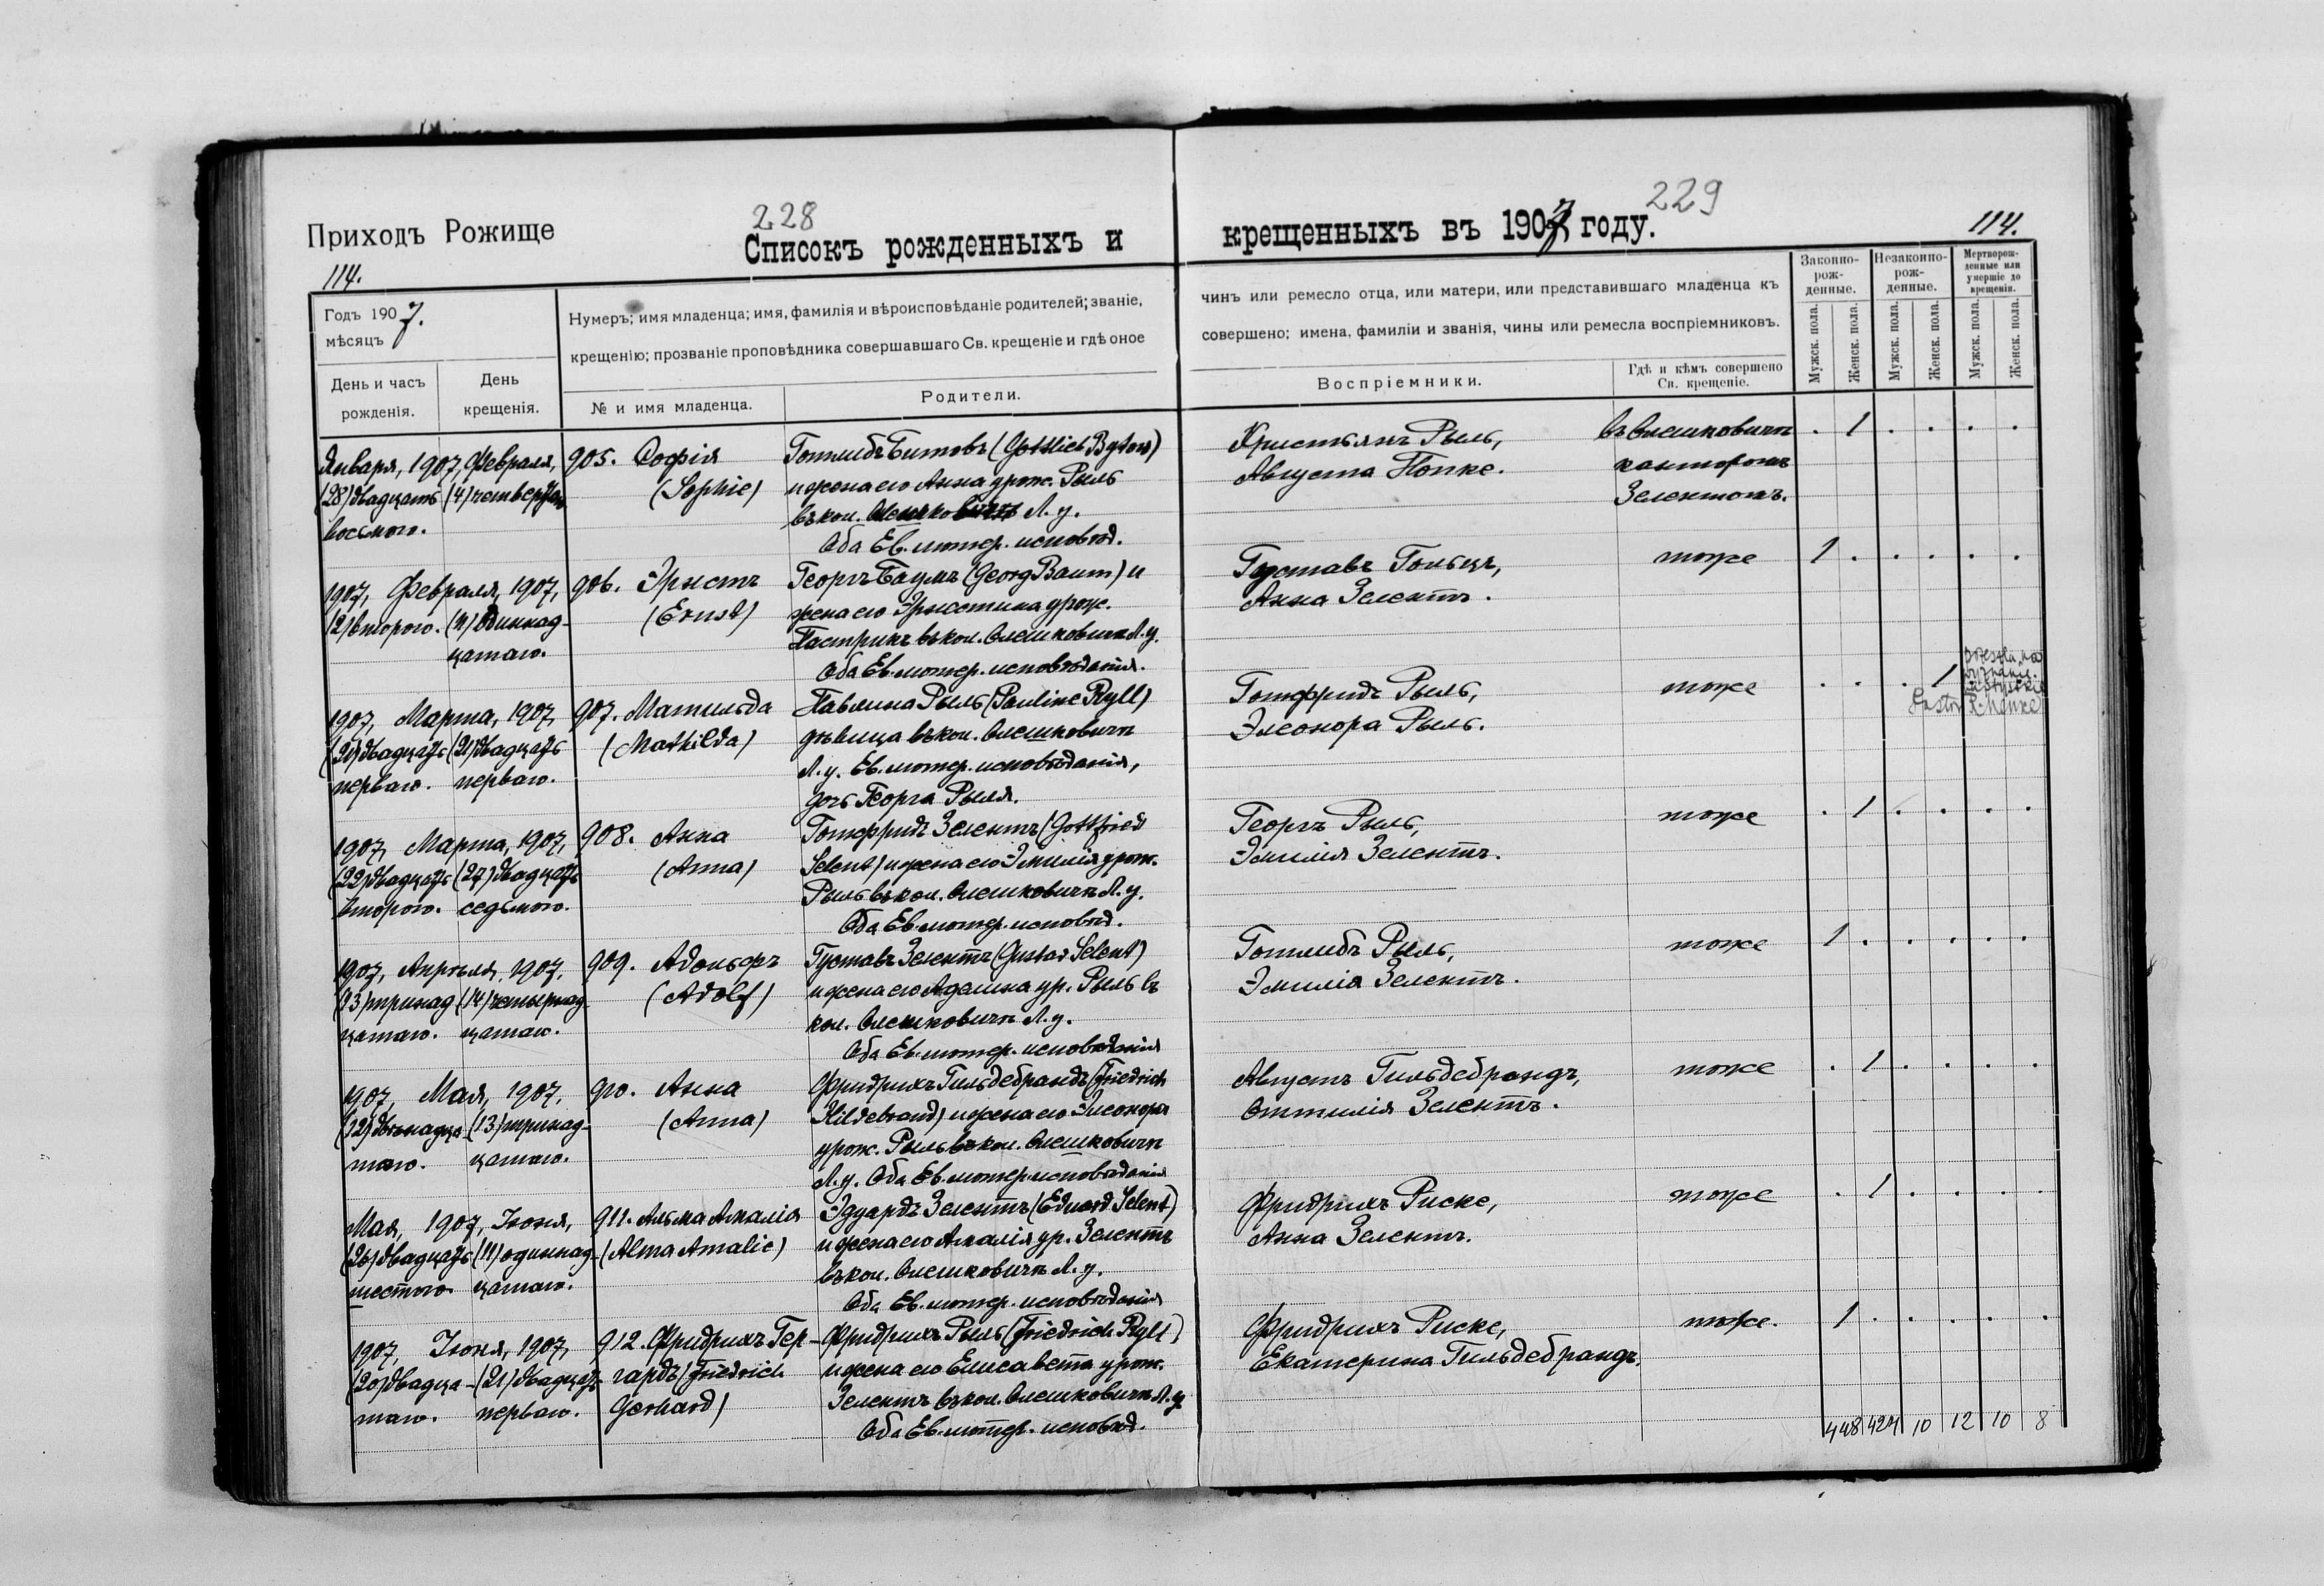 228
229
Приходъ Рожище
Списокъ рожденныхъ и
крещенныхъ въ 1907 году.
114.
114.
Годъ 1907.
мѣсяцъ
Нумеръ; имя младенца; имя, фамилія и вѣроисповѣданіе родителей; званіе,
крещенію; прозваніе проповѣдника совершавшаго Св. крещеніе и гдѣ оное
чинъ или ремесло отца, или матери, или представившаго младенца къ
совершено; имена, фамиліи и званія, чины или ремесла воспріемниковъ.
Законно-
рож-
денные.
Незаконно-
рож-
денные.
Мертворож-
денные или
умершіе до
крещенія.
День и часъ
рожденія.
День
крещенія.
№ и имя младенца.
Родители.
Воспріемники.
Гдѣ и кѣмъ совершено
Св. крещеніе.
Мужск. пола.
Женск. пола.
Мужск. пола.
Женск. пола.
Мужск. пола.
Женск. пола.
Января, 1907, Февраля,
(28) двадцать (4) четвертаго
восьмого.
905. Софія
(Sophie)
Готлибъ Битовъ (Gottlieb Bytow)
и жена его Анна урож. Рыль
въ кол. Олешковичи Л. у.
Оба Ев. лютер. исповѣд.
Христьянъ Рыль,
Августа Попке.
въ Олешковичи
канторомъ
Зелентомъ.
. 1 . . . .
1907, Февраля, 1907,
(2) второго. (11) одиннад-
цатаго.
906. Эрнстъ
(Ernst)
Георгъ Баумъ (Georg Baum) и
жена его Эрнестина урож.
Пастрикъ въ кол. Олешковичи Л. у.
Оба Ев. лютер. исповѣданія.
Густавъ Гольцъ,
Анна Зелентъ.
тоже
1 . . . . .
1907, Марта, 1907,
(21) двадцать (21) двадцать
перваго. перваго.
907. Матильда
(Mathilda)
Павлина Рыль (Pauline Ryll)
дѣвица въ кол. Олешковичи
Л. у. Ев. лютер. исповѣданія,
дочь Георга Рыля.
Готфридъ Рыль,
Элеонора Рыль.
тоже
. . . 1
Pastor
1907, Марта, 1907,
(22) двадцать (27) двадцать
второго. седьмого.
908. Анна
(Anna)
Готфридъ Зелентъ (Gottfried
Selent) и жена его Эмилія урож.
Рыль въ кол. Олешковичи Л. у.
Оба Ев. лютер. исповѣд.
Георгъ Рыль,
Эмилія Зелентъ.
тоже
. 1 . . . .
1907, Апрѣля, 1907,
(13) тринад (14) четырнад-
цатаго. цатаго.
909. Адольфъ
(Adolf)
Густавъ Зелентъ (Gustav Selent)
и жена его Аделина ур. Рыль въ
кол. Олешковичи Л. у.
Оба Ев. лютер. исповѣданія
Готлибъ Рыль,
Эмилія Зелентъ.
тоже
1 . . . . .
1907, Мая, 1907,
(12) двѣнадца- (13) тринад-
таго. цатаго.
910. Анна
(Anna)
Фридрихъ Гильдебрандъ (Friedrich
Hildebrand) и жена его Элеонора
урож. Рыль въ кол. Олешковичи
Л. у. Оба Ев. лютер. исповѣданія
Августъ Гильдебрандъ,
Оттилія Зелентъ.
тоже
. 1 . . . .
Мая, 1907, Іюня,
(26) двадцать (11) одиннад-
шестого цатаго.
911. Альма Амалія
(Alma Amalie)
Эдуардъ Зелентъ (Eduard Selent)
и жена его Амалія ур. Зелентъ
въ кол. Олешковичи Л. у.
Оба Ев. лютер. исповѣданія
Фридрихъ Риске,
Анна Зелентъ.
тоже
. 1 . . . .
1907 Іюня, 1907,
(20) двадца- (21) двадцать
таго. перваго.
912. Фридрихъ Гер-
гардъ (Friedrich
Gerhard)
Фридрихъ Рыль (Friedrich Ryll)
и жена его Елисавета урож.
Зелентъ въ кол. Олешковичи Л. у.
Оба Ев. лютер. исповѣд.
Фридрихъ Риске,
Екатерина Гильдебрандъ.
тоже.
1 . . . . .
448 424 10 12 10 8